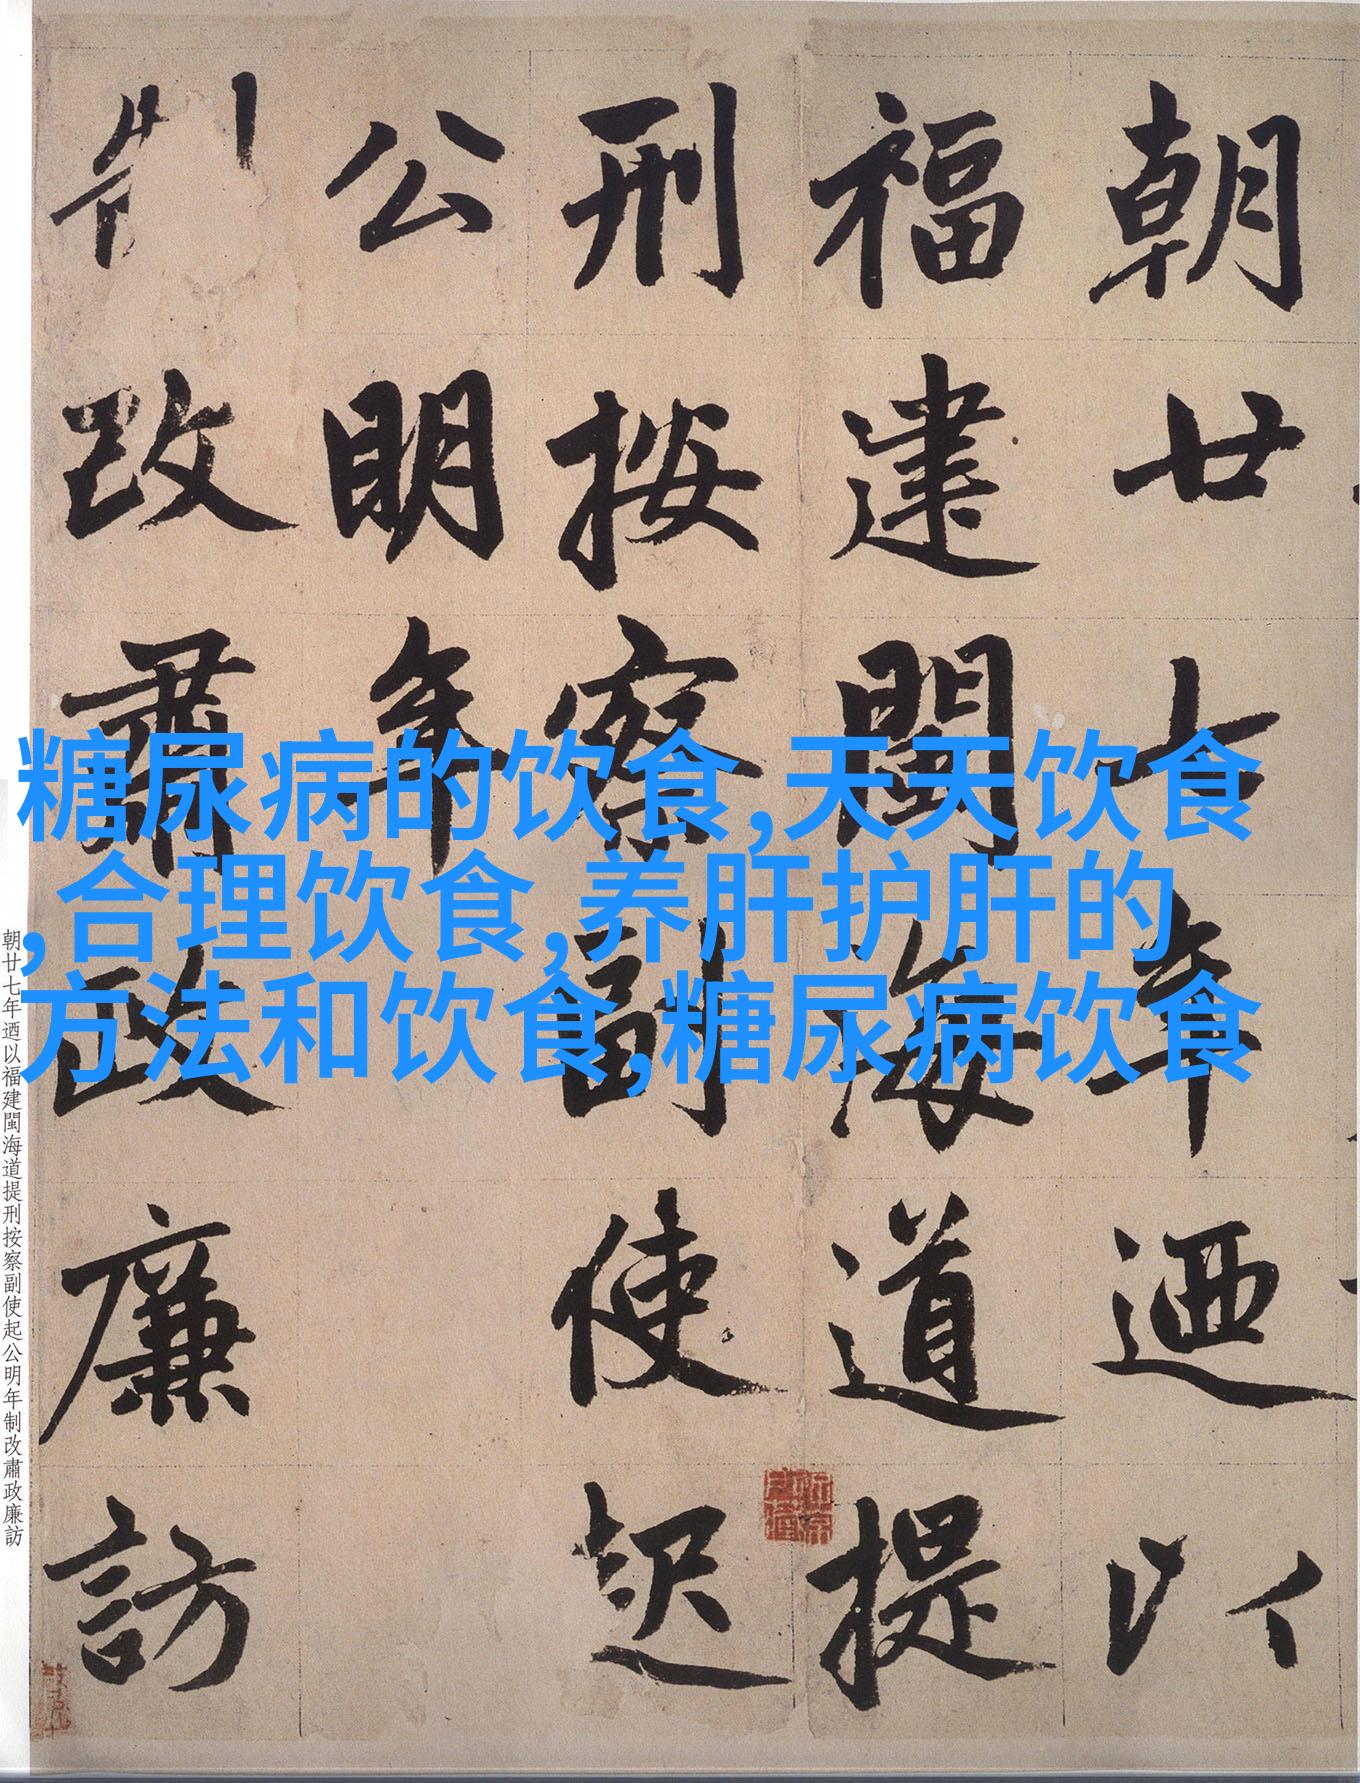 朝廿七年迺以
福建閩海道提
刑按察副使起
公明年
制改肅政廉訪
糖尿病的饮食,天天饮食
,合理饮食,养肝护肝的
方法和饮食,糖尿病饮食
朝廿七年迺以福建閩海道提刑按察副使起公明年制改肅政廉訪